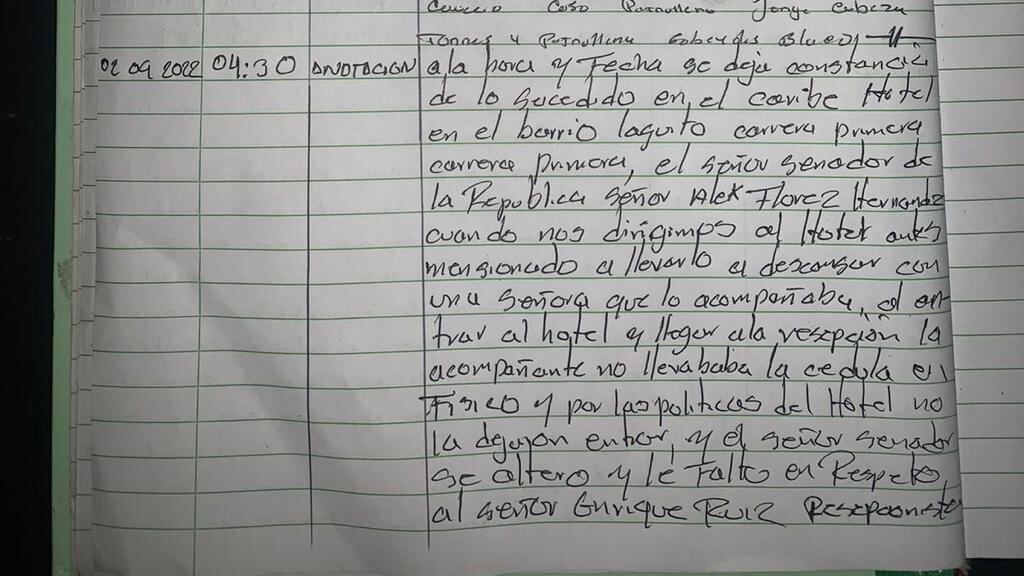 Caso Patrullero Jorge Cabeza
Torres y Patrullera
02 09 2022 04:30 ANOTACION a la hora y Fecha se deja constancia
de lo sucedido en, el caribe Hotel
en el barrio laguito carrera primera
carrera primera, el señor senador de
la Republica señor Alex Florez Hernande
cuando nos dirigimos al Hotel antes
mensionado a llevarlo a descansar con
una señora que lo acompañaba, al en-
trar al hotel y llegar ala resepción la
acompañante no llevababa la cedula en
Fisico y por las politicas del Hotel no
la dejajon entrar, y el señor senador
se altero y le Falto en Respeto
al señor Enrique Ruiz Resepcionista